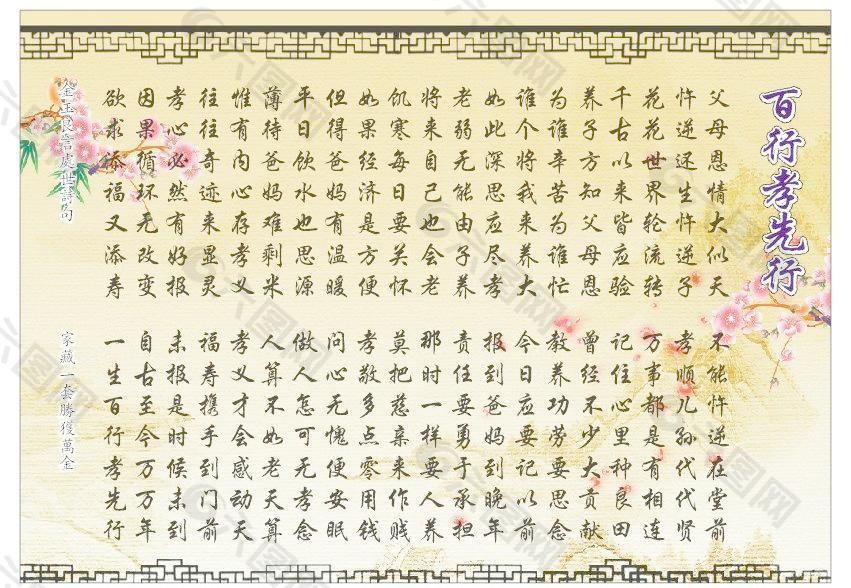 百行孝先行
父母恩情大似天
不能忤逆在堂前
忤逆还生忤逆子
孝顺儿孙代代贤
花花世界轮流转
万事都是有相连
千古以来皆应验
记住心里种良田
养子方知父母恩
曾经不少大贡献
为谁辛苦为谁忙
教养功劳要思念
谁个将我来养大
今日应要记以前
如此深思应尽孝
报到爸妈到晚年
老弱无能由子养
责任要勇于承担
将来自己也会老
那时一样要人养
饥寒每日要关怀
莫把慈亲来作贱
如果经济是方便
孝敬多点零用钱
但得爸妈有温暖
问心无愧便安眠
平日饮水也思源
做人怎可无孝念
薄待爸妈难剩米
人算不如老天算
惟有内心存孝义
孝义才会感动天
往往奇迹来显灵
福寿携手到门前
孝心必然有好报
未报是时候未到
因果循环无改变
自古至今万万年
欲求添福又添寿
一生百行孝先行
金玉良言處世詩句
家藏一套勝獲萬金
六图网